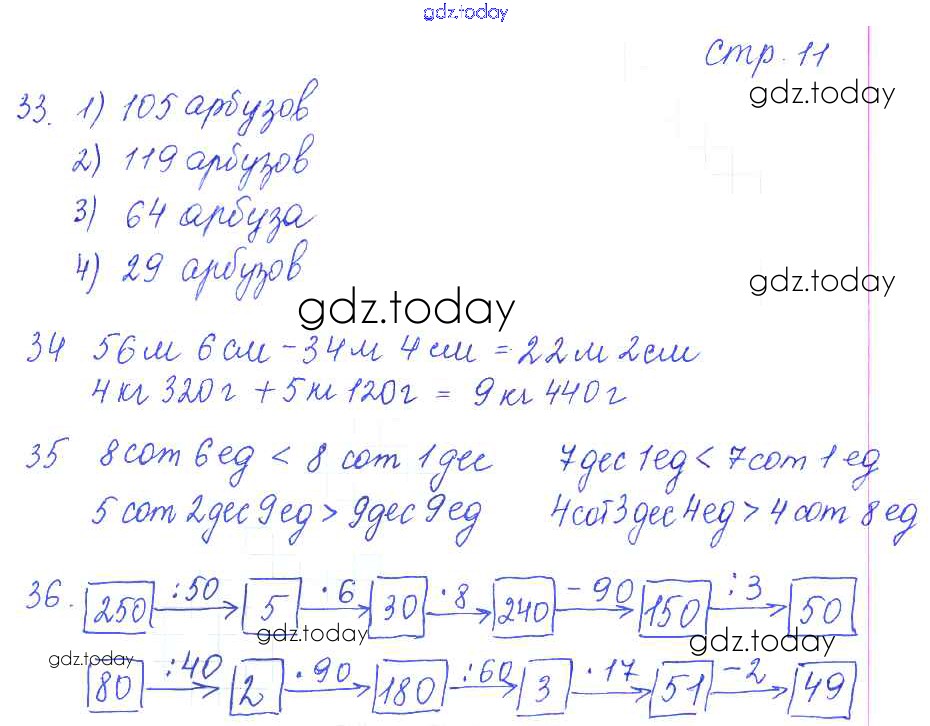 gdz.today
стр. 11
gdz.today
33. 1) 105 арбузов
2) 119 арбузов
3) 64 арбуза
4) 29 арбузов
gdz.today
gdz.today
34 56м 6см - 34м 4см = 22м 2см
4кг 320г + 5кг 120г = 9кг 440г
35 8сот 6ед < 8 сот 1дес 7дес 1ед < 7сот 1ед
5 сот 2дес 9ед > 9дес 9ед 4сот 3дес 4ед > 4 сот 8ед
36. 250 :50 5 ·6 30 ·8 240 -90 150 :3 50
gdz.today gdz.today
gdz.today
80 :40 2 ·90 180 :60 3 ·17 51 -2 49